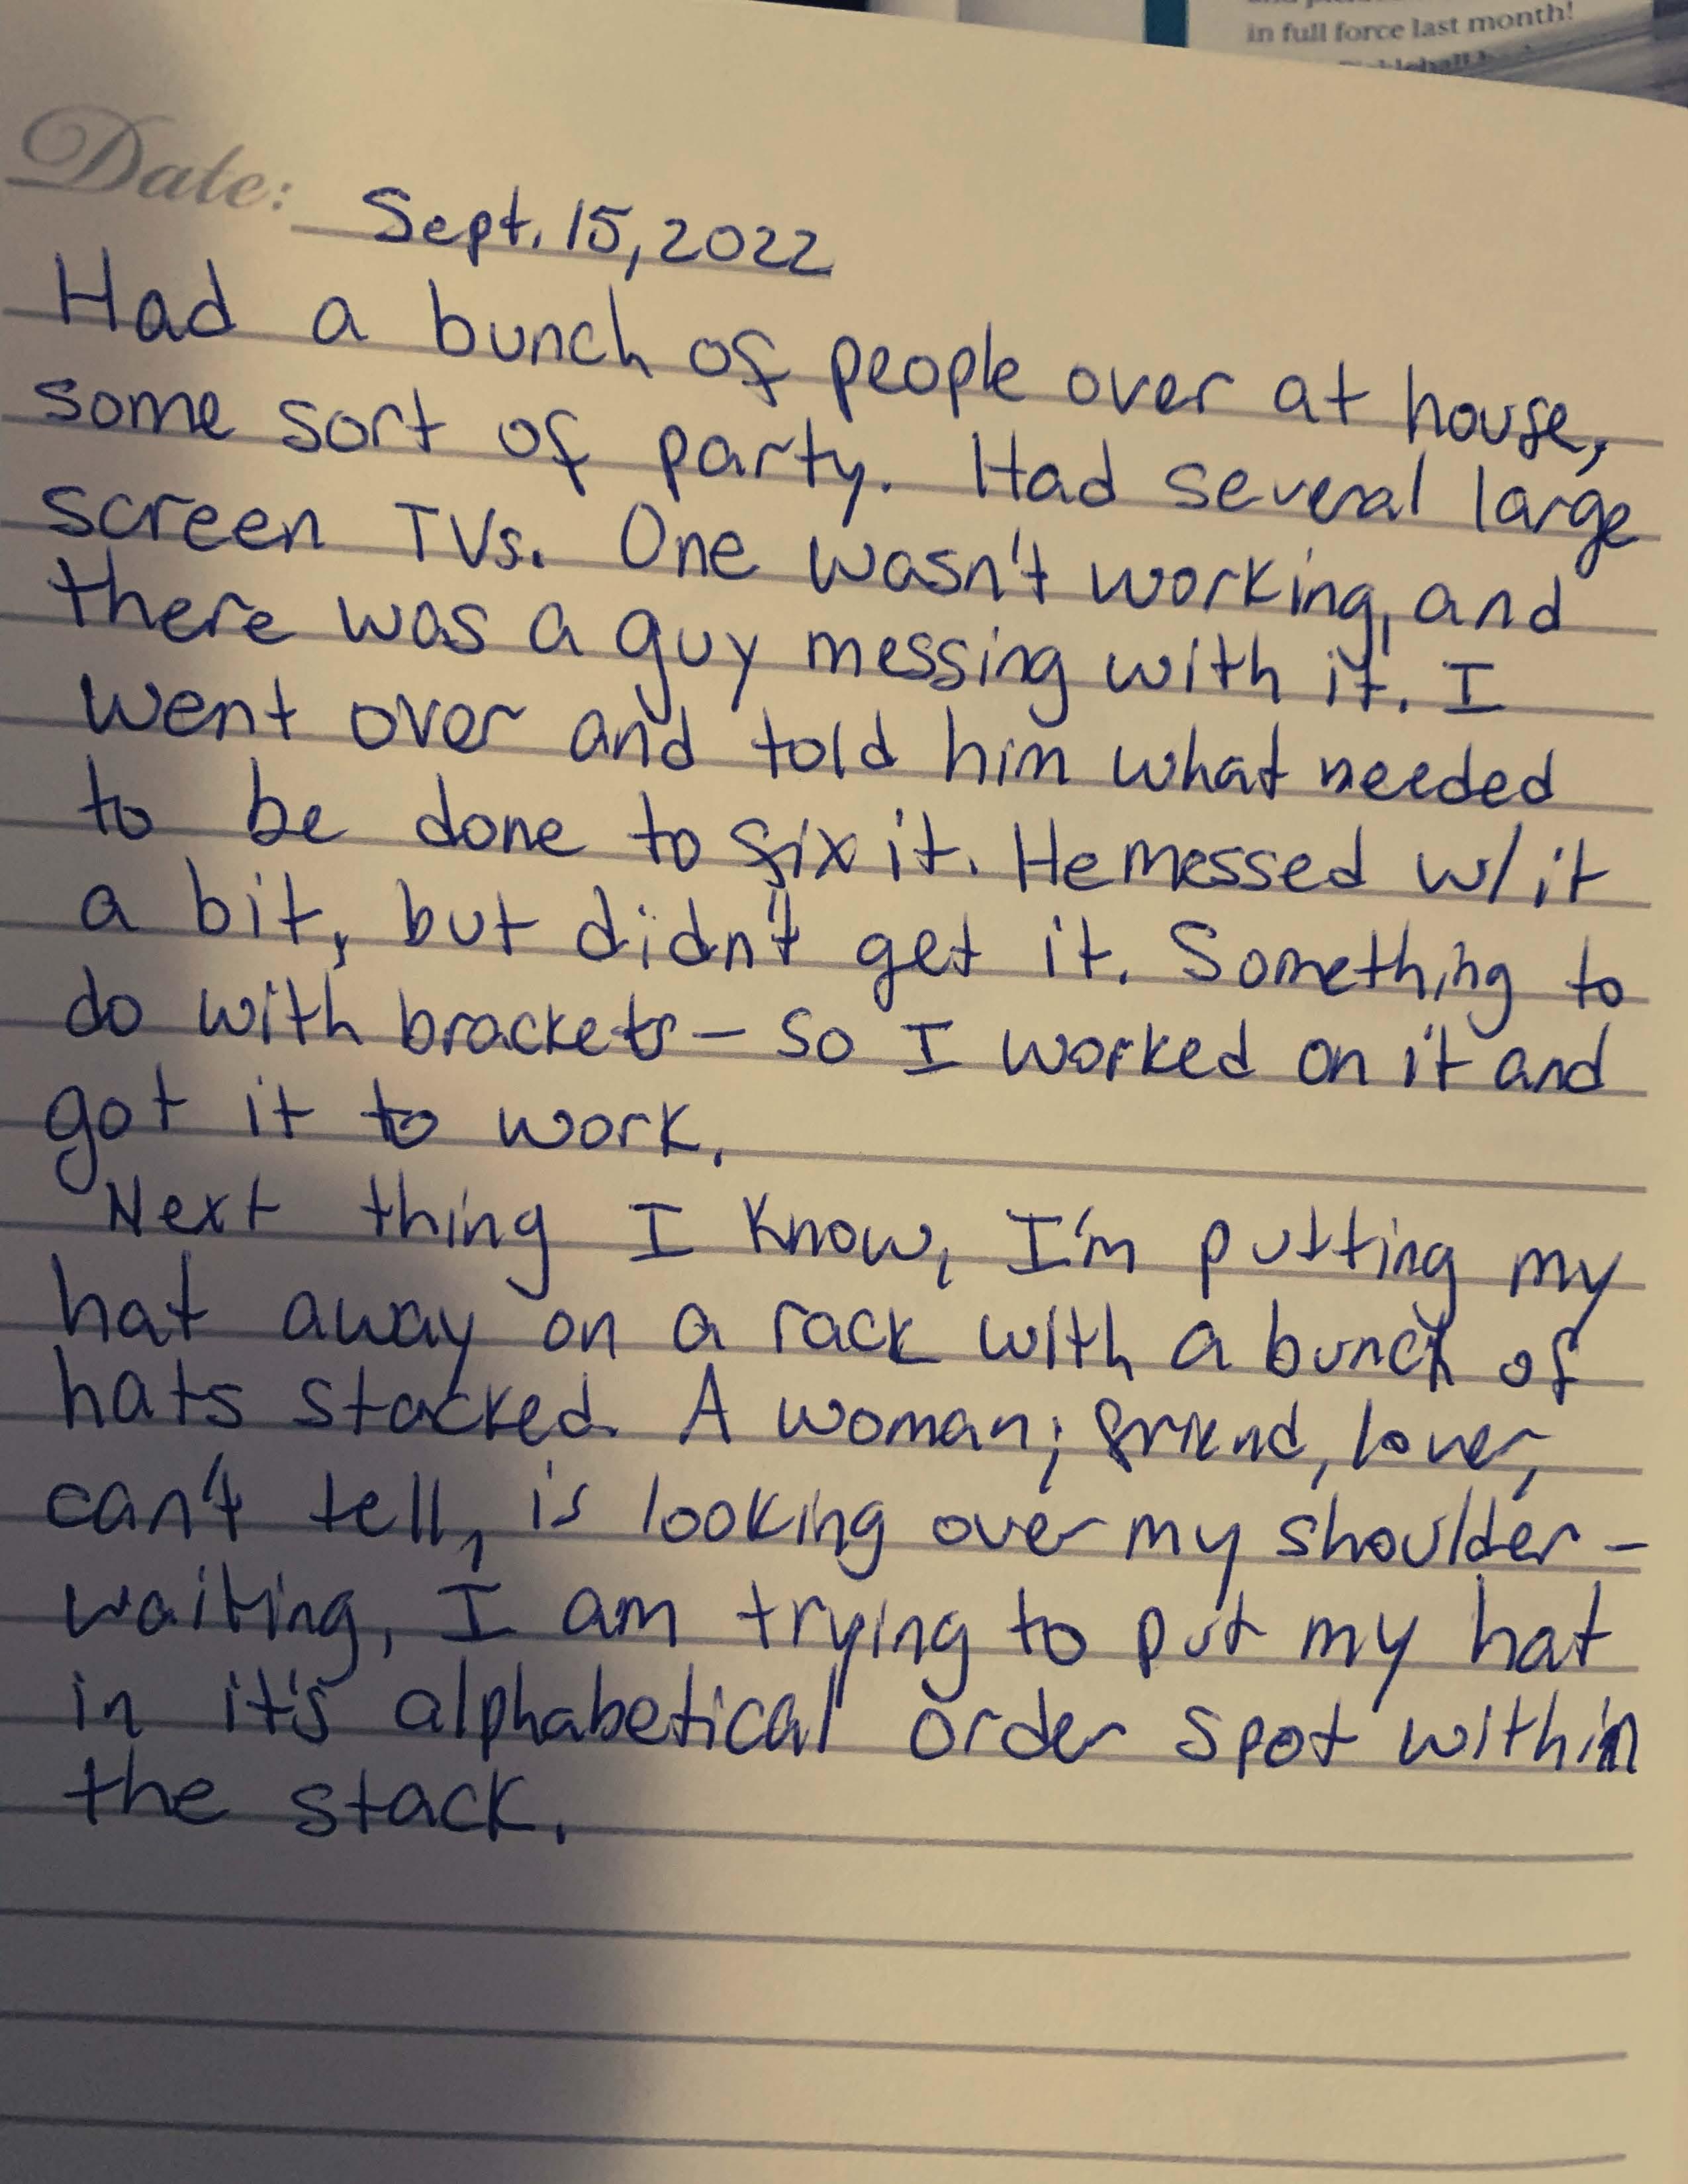 in full force last month!
Date: Sept. 15, 2022
Had a bunch of people over at house,
some sort of party. Had several large
screen TVs. One wasn't working, and
there was a guy messing with it. I
went over and told him what needed
to be done to fix it. He messed w/ it
a bit, but didn't get it. Something to
do with brackets - so I worked on it and
got it to work.
Next thing I know, I'm putting my
hat away on a rack with a bunch of
hats stacked. A woman; friend, lover,
can't tell, is looking over my shoulder -
waiting, I am trying to put my hat
in it's alphabetical order spot within
the stack.